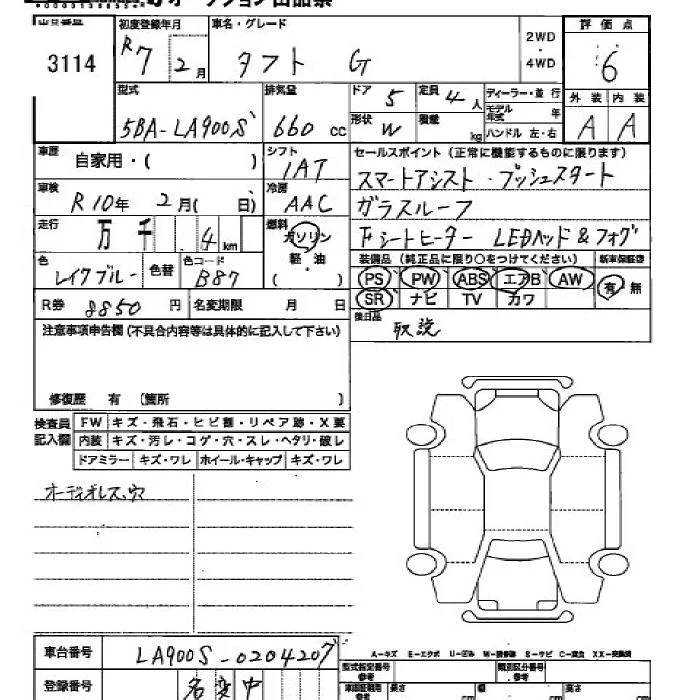 オークション出品票
出品番号 初度登録年月 車名・グレード 評価点
3114 R7 2月 タフト G 2WD ・ 4WD 6
型式 排気量 ドア 5 定員 4人 ディーラー・並行 外装 内装
5BA-LA900S 660 cc 形状 W 積載 kg モデル年式 年 A A
ハンドル 左・右
車歴 自家用・( ) シフト 1AT セールスポイント(正常に機能するものに限ります)
スマートアシスト・プッシュスタート
車検 R10年 2月( 日) 冷房 AAC ガラスルーフ
走行 万 千 .4 km 燃料 ガソリン 軽・油 ( ) Fシートヒーター LEDヘッド&フォグ
色 レイクブルー 色替 色コード B87 装備品(純正品に限り○をつけてください) 新車保証書
PS PW ABS エアB AW 有・無
R券 8850円 名変期限 月 日 SR ナビ TV カワ
注意事項申告欄(不具合内容等は具体的に記入して下さい) 後日品 取説
修復歴 有 (箇所 )
検査員記入欄 FW キズ・飛石・ヒビ割・リペア跡・X要
内装 キズ・汚レ・コゲ・穴・スレ・ヘタリ・破レ
ドアミラー キズ・ワレ ホイール・キャップ キズ・ワレ
オーディオレス、穴
車台番号 LA900S-0204207
A-キズ E-エクボ U-凹み W-補修跡 S-サビ C-腐食 XX-交換済
登録番号 名変中 型式指定番号 参考 類別区分番号 参考
長さ cm 幅 cm 高さ cm